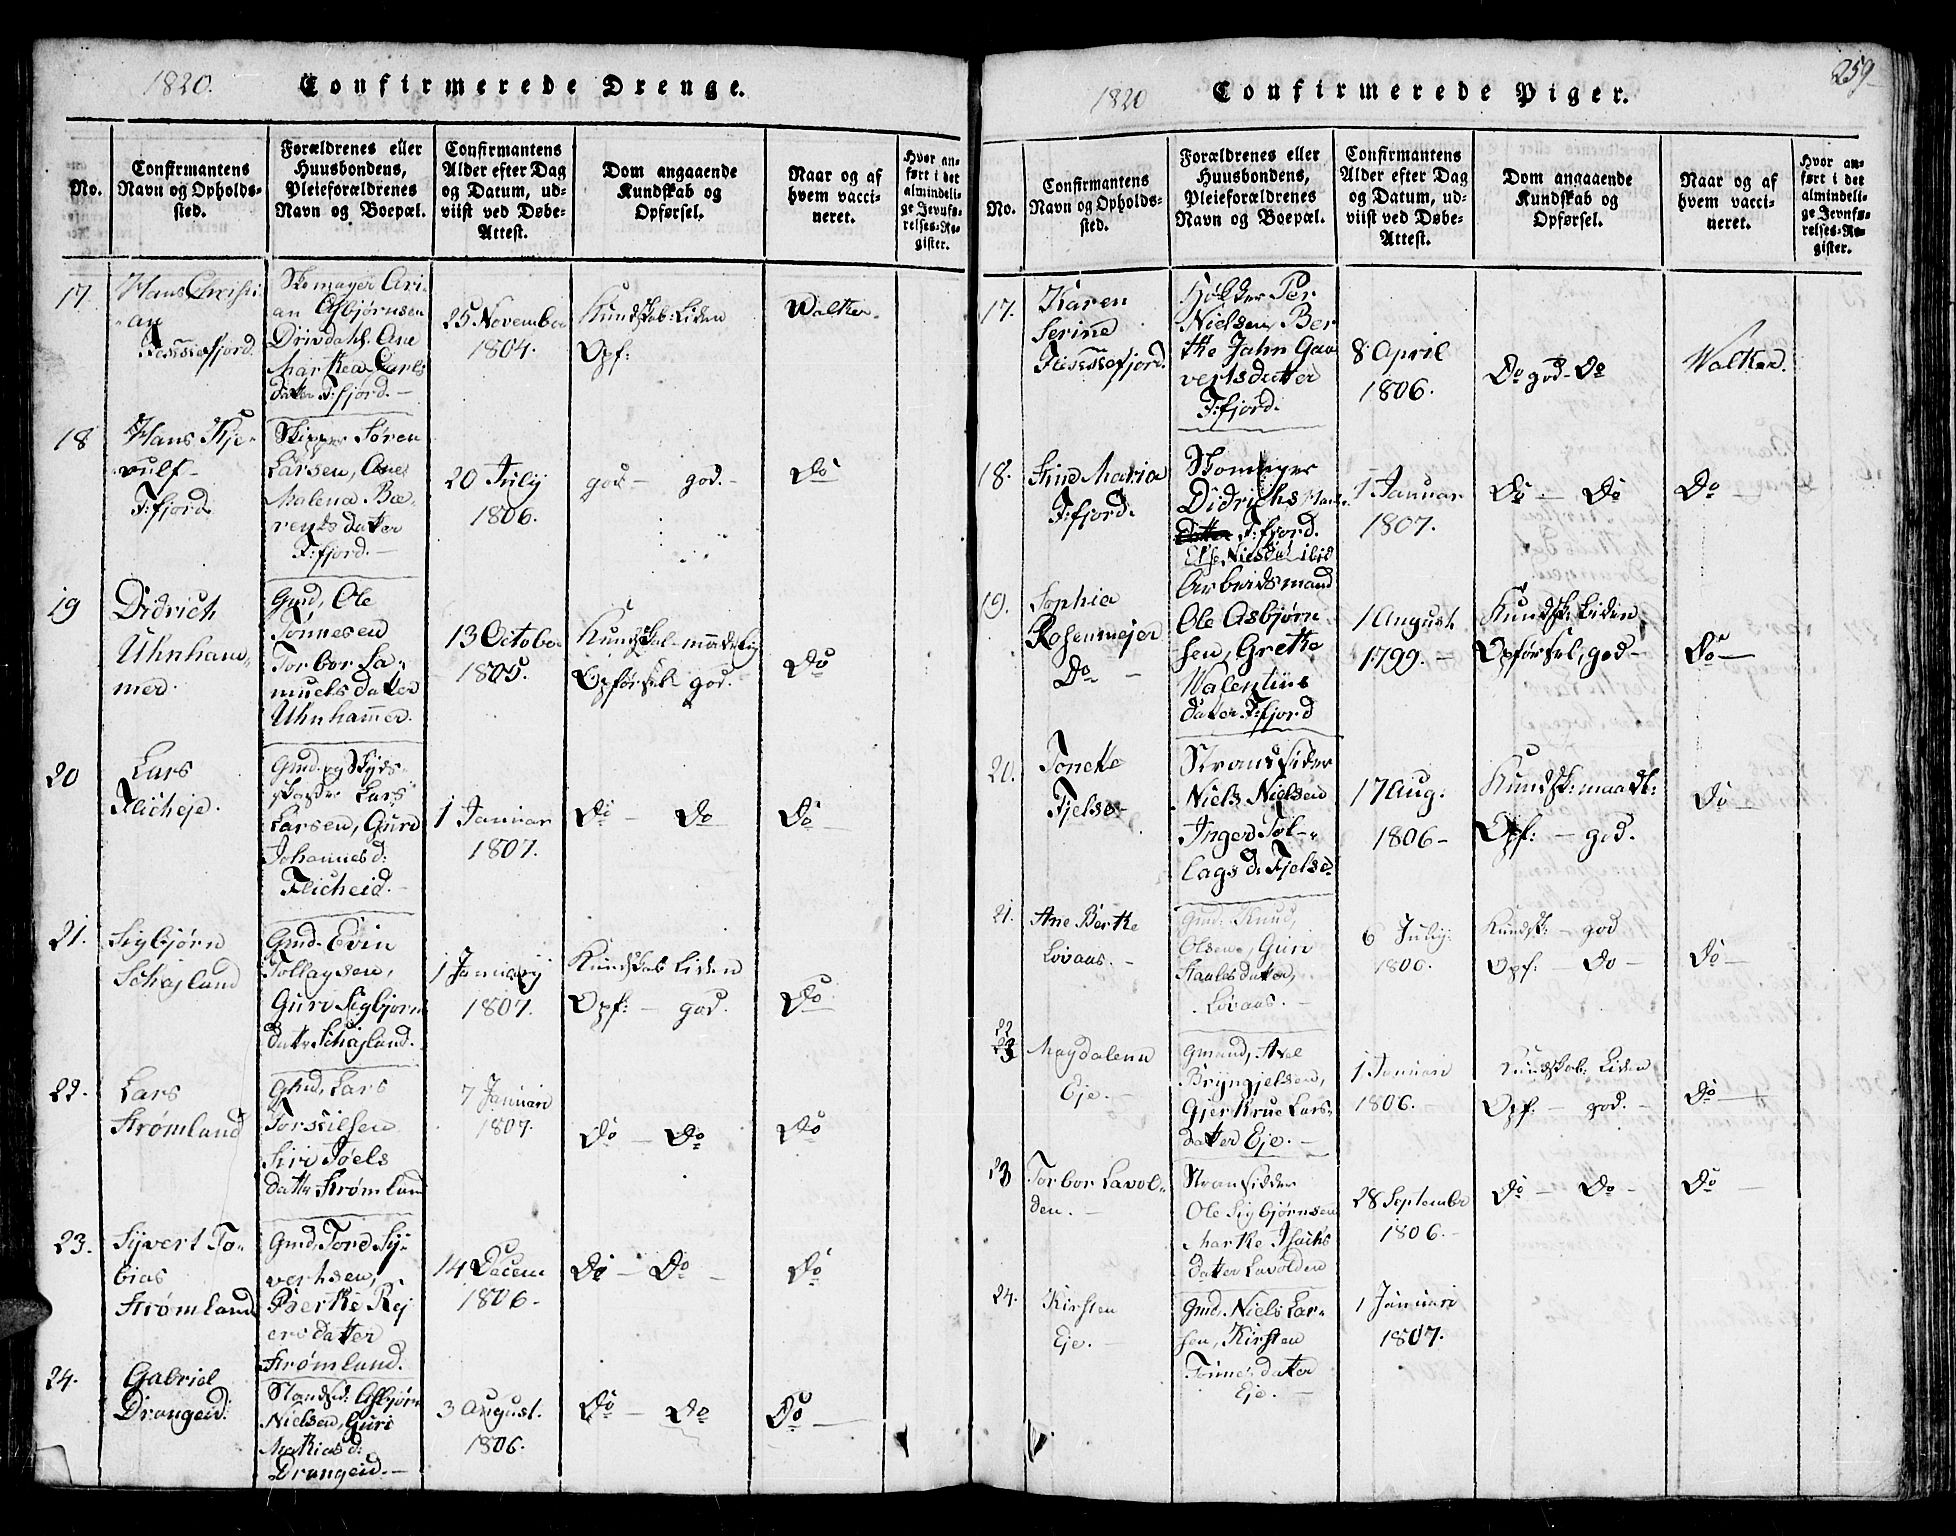 1820.
Confirmerede Drenge.
No.
Confirmantens
Navn og Opholds-
sted.
Forældrenes eller
Huusbondens,
Pleieforældrenes
Navn og Boepæl.
Confirmantens
Alder efter Dag
og Datum, ud-
viist ved Døbe-
Attest.
Dom angaaende
Kundskab og
Opførsel.
Naar og af
hvem vacci-
neret.
Hvor an-
ført i det
almindeli-
ge Jevnfø-
relses-Re-
gister.
17
Hans Christi-
an
Skomager Ari-
an Asbjørnsen
Drivdahl, Ane
Marthea Carls
datter F:fjord.-
25 November
1804.
Kundskab: Liden
Opf:
Walker.
18
Hans Kje-
vulf-
F:fjord.
Skipper Søren
Larsen, Ane
Malena Bæ-
rents datter
F:fjord.-
20 July
1806.
god - god.-
Do
19
Didrich
Uhnham-
mer.
Gmd, Ole
Tønnesen
Torbor Sa-
muels datter
Uhnhamer.
13 October
1805.
Kundskab- maadelig
Opførsel- god.-
Do
20
Lars
Flicheje.
Gmd. og Skyds-
Lars
Larsen, Guro
Johannes d:
Flicheid.-
1 Januar
1807.
Do - Do
Do -
21.
Sigbjørn
Schajland
Gmd. Evin
Tollagsen,
Guro Sigbjørns
datr Schajland.
1 January
1807.
Kundskab Liden
Opf: - god.
Do
22.
Lars
Strømland
Gmd, Lars
Torkilsen
Siri Joels
datter Strømland
7 Januari
1807.
Do - Do
Do
23.
Sijvert To-
bias
Strømland
Gmd, Tore Sij-
vertsen,
Berthe Rej
ers datter
Strømland.
14 Decem
1806.
Do - Do -
Do
24.
Gabriel
Drangeid.
Strandsid: Asbjørn
Nielsen, Guri
Mathias d:
Drangeid.-
3 August.
1806.
Do - Do
Do -
259
1820
Confirmerede Piger.
No.
Confirmantens
Navn og Opholds-
sted.
Forældrenes eller
Huusbondens,
Pleieforældrenes
Navn og Boepæl.
Confirmantens
Alder efter Dag
og Datum, ud-
viist ved Døbe-
Attest.
Dom angaaende
Kundskab og
Opførsel.
Naar og af
hvem vacci-
neret.
Hvor an-
ført i det
almindeli-
ge Jevnfø-
relses-Re-
gister.
17.
Karen
Serine
Per
Nielsen, Ber
the Jahn Gau
vertsdatter
F:fjord.
8 April
1806.
Do god - Do
Walker.
18.
Stine Maria
F:fjord.
Skomager
Didrichs
F:fjord.
Else Nielsd: ibid
1 Januar
1807.
Do - Do
Do -
19.
Sophia
Rosenmejer
Do -
Arbeidsmand
Ole Asbjørn
sen, Grethe
Valentins
datter F:fjord
1 August
1799. -
Kundsk: Liden
Opførsel, god -
Do -
20.
Tonette
Fjelse -
Strandsider
Niels Nielsen
Inger Tol-
lags d. Fjelse
17 Aug:
1806 -
Kundsk: maadl:
Opf: - god.
Do -
21.
Ane Berthe
Løvaas. -
Gmd. Knud
Olsen, Guri
Staalesdatter,
Løvaas. -
6 July.
1806.
Kundsk: - god
Opf: - Do -
Do -
22
Magdalena
Eje. -
Gmand, Axel
Bryngjelsen,
Gjertrue Lars
datter Eje. -
1 Januari
1806.
Kundskab: Liden
Opf: - god. -
Do -
23
Torbor Lavol-
den. -
Stransidder
Ole Sigbjørnsen
Marthe Isachs
datter Lavolden
28 September
1806. -
Do - Do -
Do -
24.
Kirsten
Eje. -
Gmd, Niels Lar-
sen, Kirsten
Tønnes datter
Eje. -
1 Januari
1807.